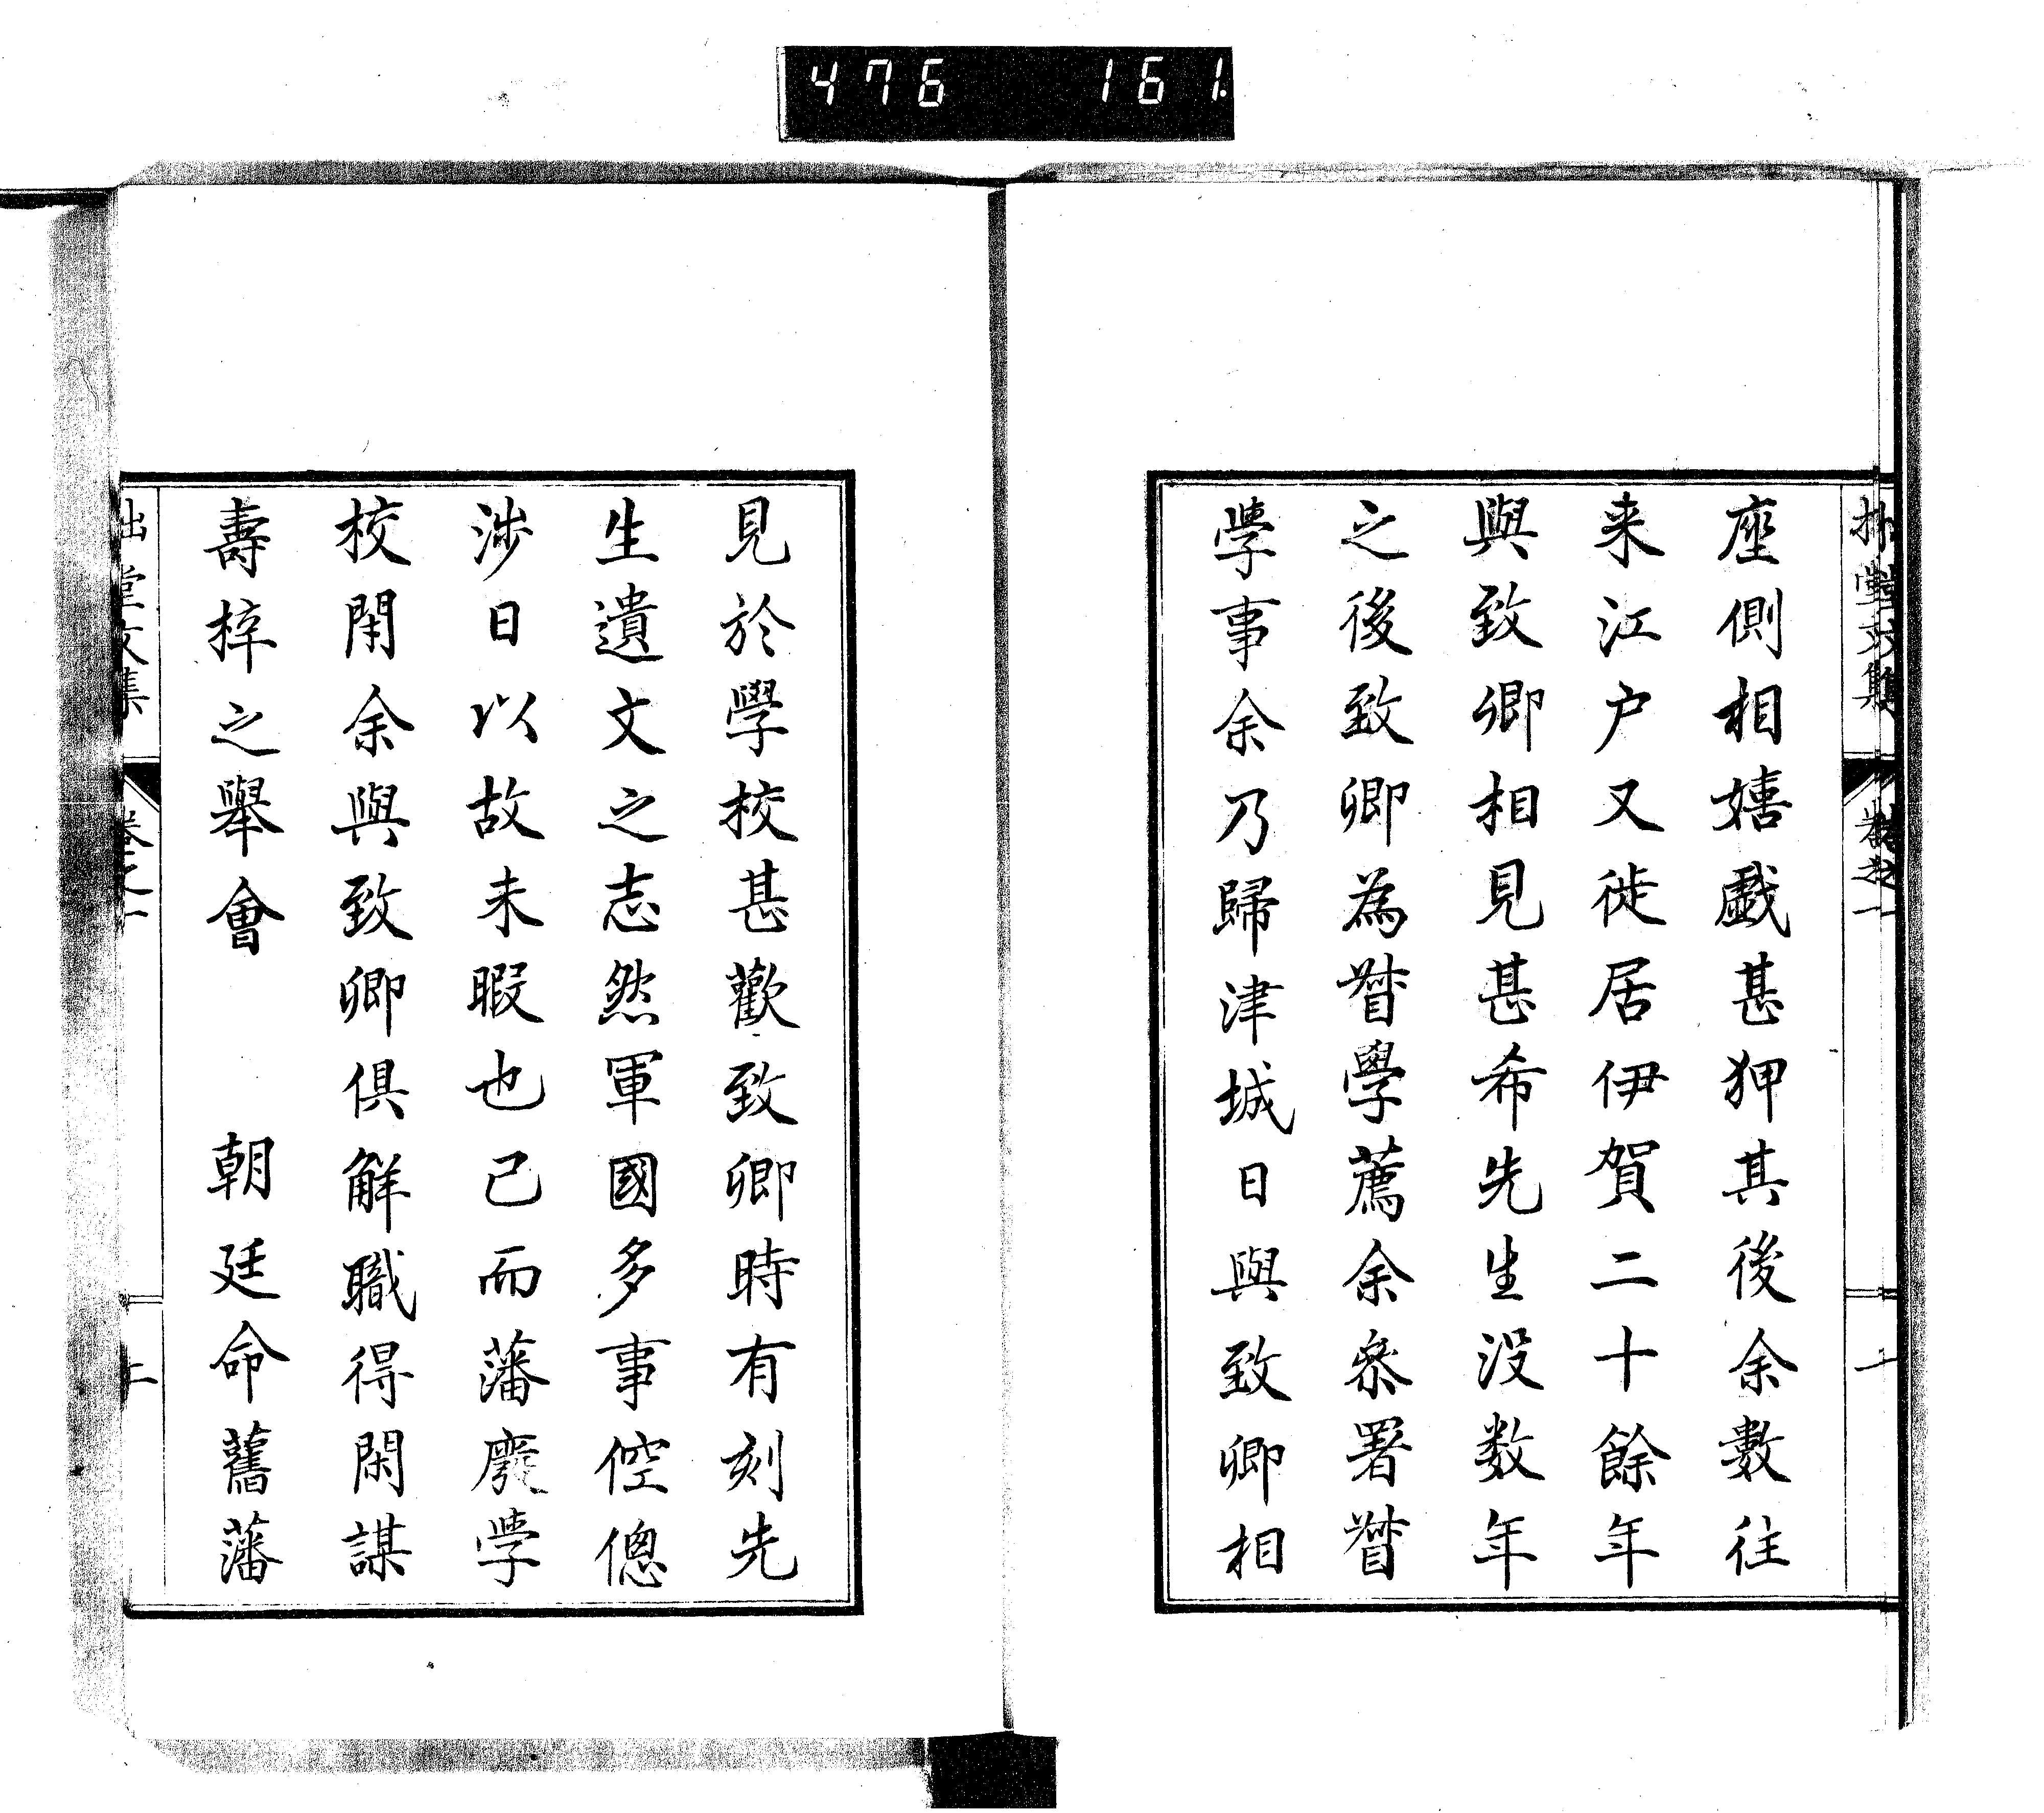 476 161
座側相嬉戯甚狎其後余數往
来江户又徙居伊賀二十餘年
與致卿相見甚希先生没数年
之後致卿為督學薦余叅署督
學事余乃歸津城日與致卿相
見於學校甚歡致卿時有刻先
生遺文之志然軍國多事倥偬
渉日以故未暇也已而藩廢学
校閉余與致卿俱解職得閑謀
壽梓之舉會　朝廷命舊藩
堂文集
卷之一